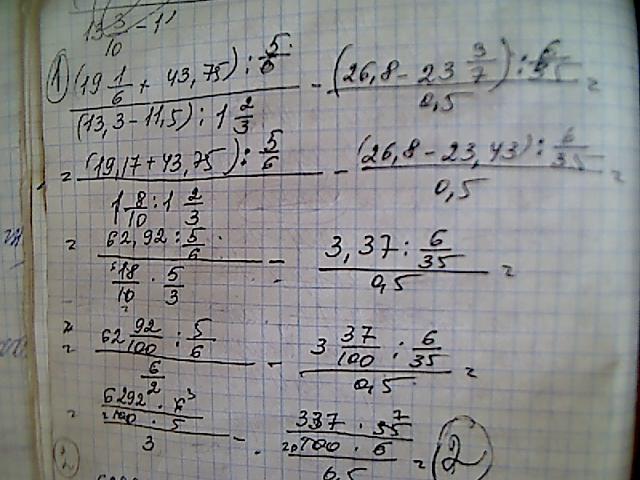 13 3/10 - 1
1) ((19 1/6 + 43,75) : 5/6) / ((13,3 - 11,5) : 1 2/3) - ((26,8 - 23 3/7) : 6/35) / 0,5 =
= ((19,17 + 43,75) : 5/6) / (1 8/10 : 1 2/3) - ((26,8 - 23,43) : 6/35) / 0,5 =
= (62,92 : 5/6) / (18/10 · 5/3) - (3,37 : 6/35) / 0,5 =
= (62 92/100 : 5/6) / (6/2) - (3 37/100 : 6/35) / 0,5 =
= ((6292 · 3) / (100 · 5)) / 3 - ((337 · 7) / (20 · 6)) / 0,5 = 2
2